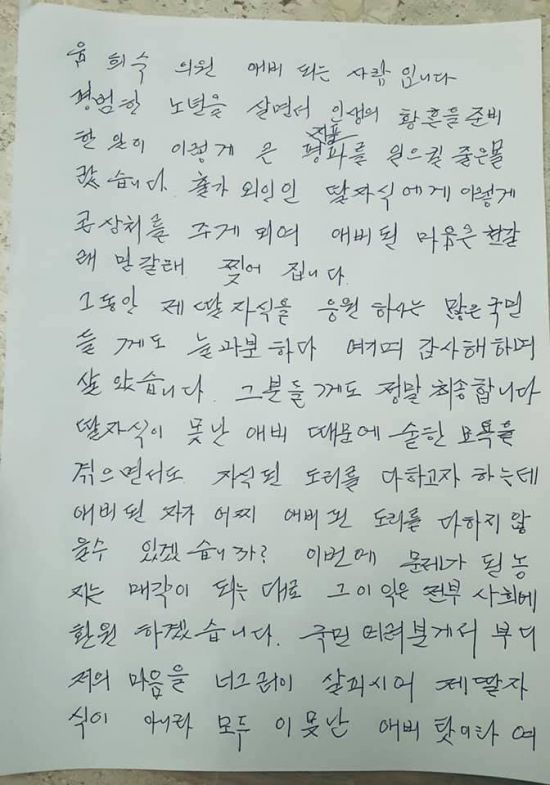 윤 희숙 의원 애비 되는 사람 입니다
평범한 노년을 살면서 인생의 황혼을 준비
한 일이 이렇게 큰 평지풍파를 일으킬 줄은몰
랐습니다. 출가 외인인 딸자식에게 이렇게
큰상처를 주게 되어 애비된 마음은 천갈
래 만갈래 찢어 집니다.
그동안 제 딸자식을 응원 하시는 많은국민
들 께도 늘과분 하다 여기며 감사해 하며
살 았습니다. 그분들 께도 정말 죄송합니다
딸자식이 못난 애비 때문에 숱한 모욕을
겪으면서도 자식된 도리를 다하고자 하는데
애비된 자가 어찌 애비된 도리를 다하지 않
을수 있겠 습니까? 이번에 문제가 된 농
지는 매각이 되는 대로 그 이익은 전부 사회에
환원 하겠 습니다. 국민 여러분게서 부디
저의 마음을 너그러이 살피시어 제딸자
식이 아니라 모두 이 못난 애비 탓이라 여